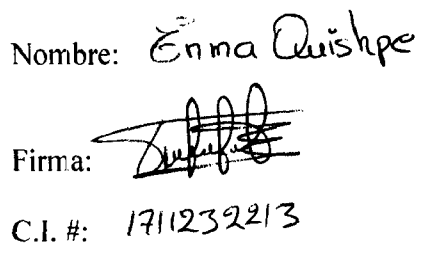 Nombre: Enma Quishpe
Firma:
C.I. #: 1711232213